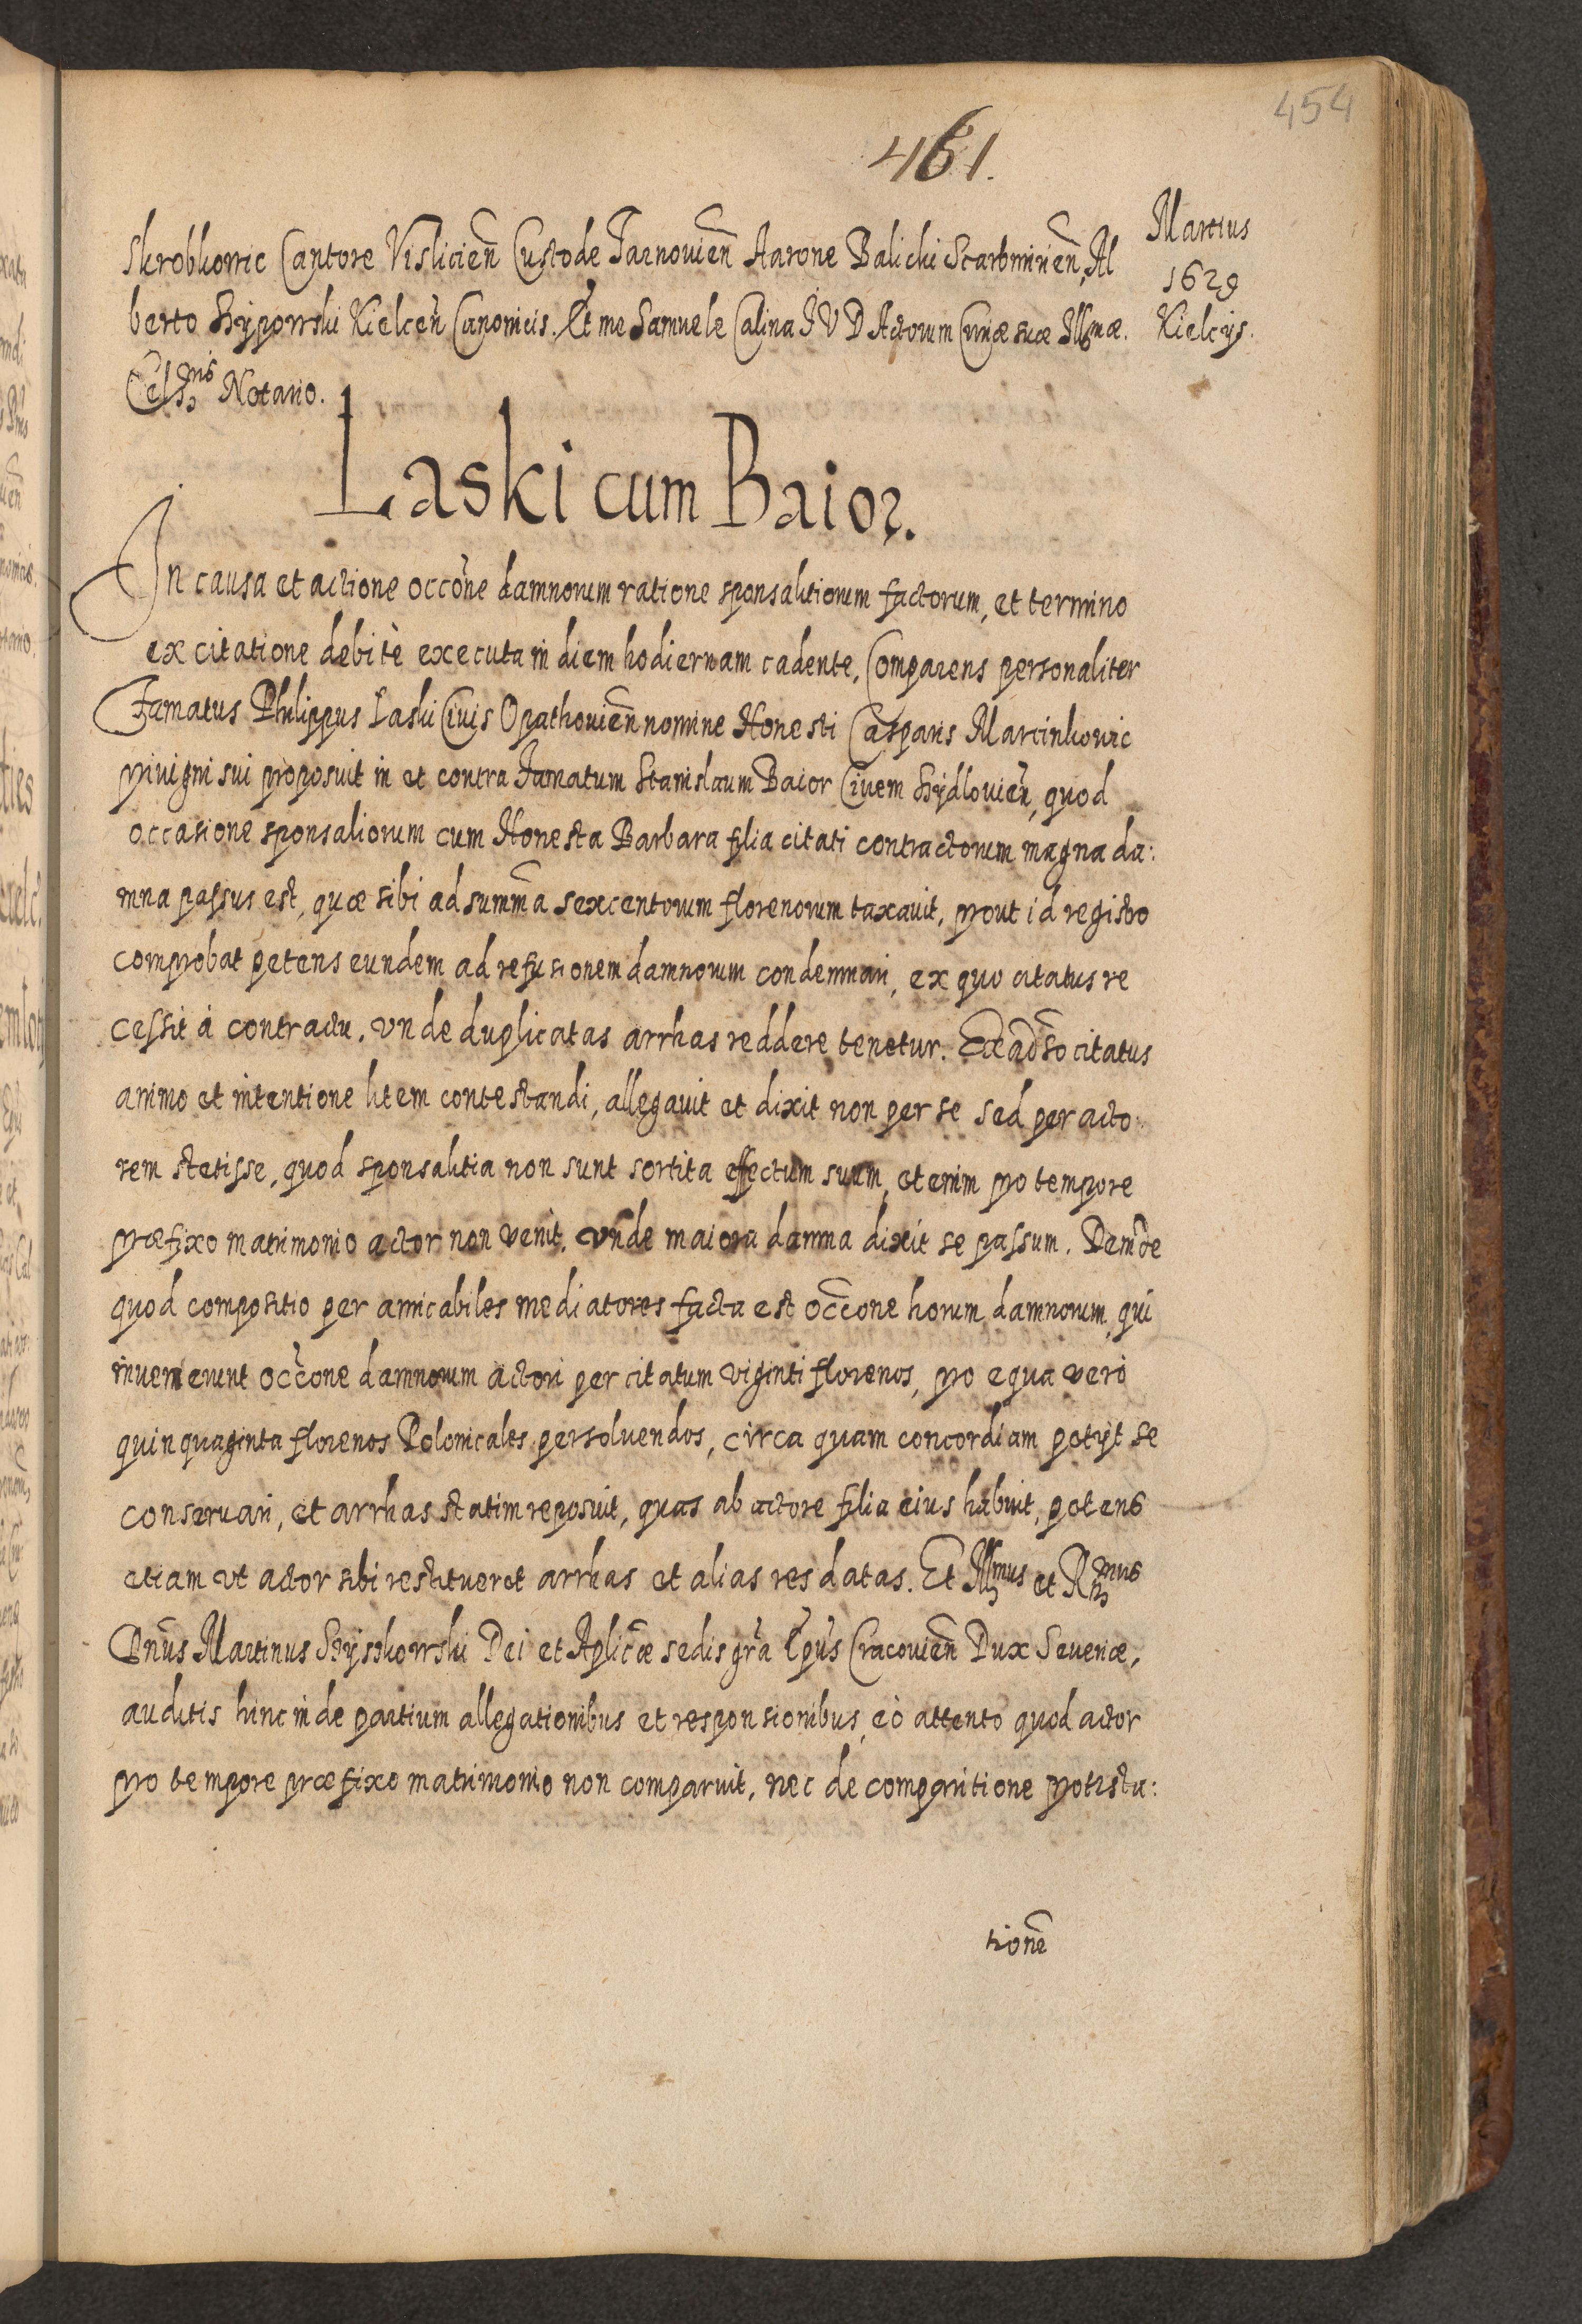 454
461.
Martius
1629
Kielcijs.
Skrobkowic Cantore Visliciēn Custode Tarnoviēn Aarone Balicki Scarbimiriēn, Al
berto Szÿpowski Kielceñ Canonicis. Et me Samuele Calina I V D Actorum Curiæ suæ Illmæ.
Cels.nis Notario.
Laski cum Baior.
In causa et actione occōne damnorum ratione sponsalitiorum factorum, et termino
ex citatione debitè executa in diem hodiernam cadente, Comparens personaliter
Famatus Philippus Laski Civis Opathoviēn nomine Honesti Casparis Marcinkowic
privigni sui proposuit in et contra Famatum Stanislaum Baior Civem Szÿdlovieñ, quod
occasione sponsaliorum cum Honesta Barbara filia citati contractorum magna da:
mna passus est, quæ sibi ad sum̄ma sexcentorum florenorum taxavit, prout id registro
comprobat petens eundem ad refusionem damnorum condemnari, ex quo citatus re
cessit à contractu, vnde duplicatas arrhas reddere tenetur. Ex adv̄so citatus
animo et intentione litem contestandi, allegavit et dixit non per se sed per acto:
rem stetisse, quod sponsalitia non sunt sortita effectum suum, etenim pro tempore
præfixo matrimonio actor non venit, vnde maiora damna dixit se passum. Dein̄de
quod compositio per amicabiles mediatores facta est occōne horum damnorum, qui
invenerunt occōne damnorum actori per citatum viginti florenos, pro equa verò
quinquaginta florenos Polonicales persolvendos, circa quam concordiam petijt se
conservari, et arrhas statim reposuit, quas ab actore filia eius habuit, petens
etiam vt actor sibi restitueret arrhas et alias res datas. Et Illmus et Rndmus
Dn̄us Martinus Szÿszkowski Dei et Aplicæ sedis gr̄a Ep̄us Cracoviēn Dux Severiæ,
auditis hinc inde partium allegationibus et responsionibus, eò attento quod actor
pro tempore præfixo matrimonio non comparuit, nec de comparitione protesta:
tionē